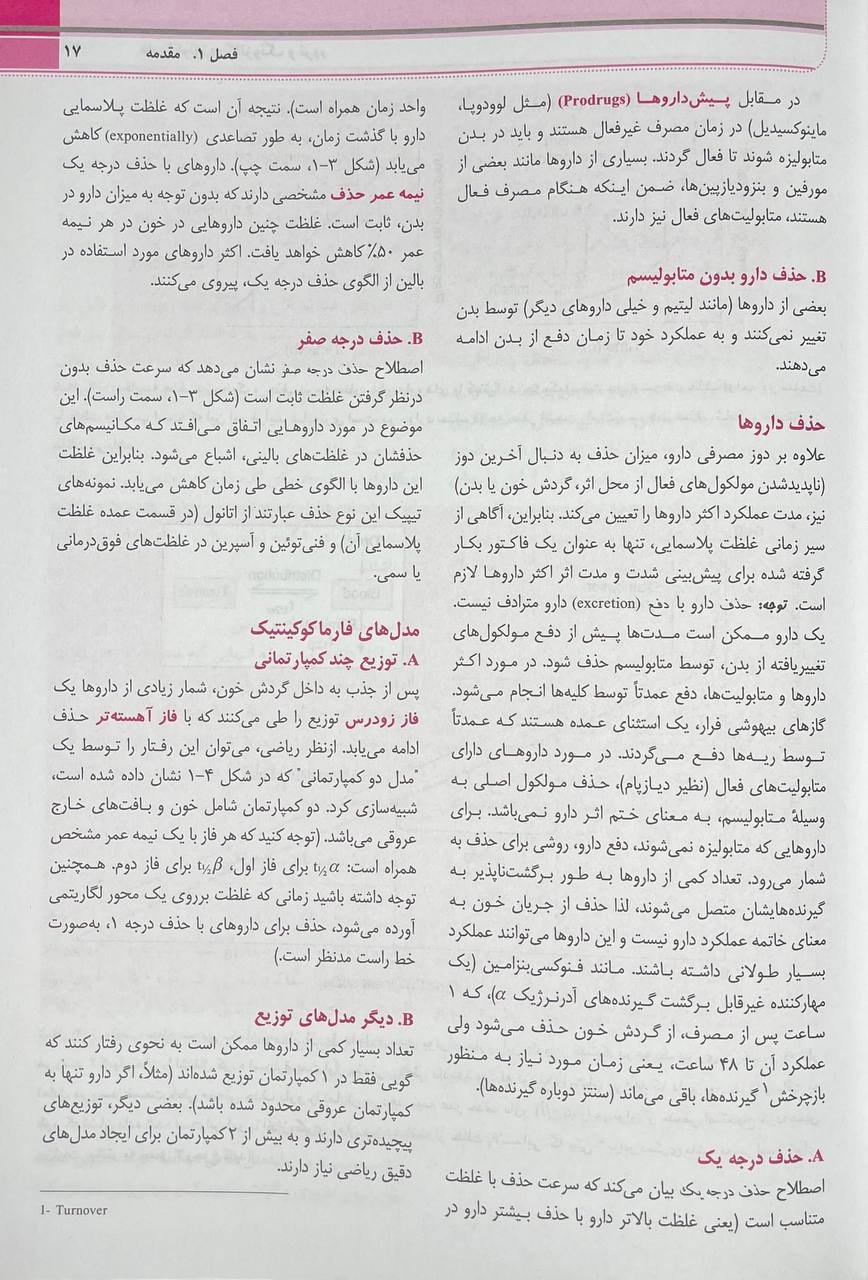 فصل ۱. مقدمه ۱۷
در مقابل پیش‌داروها (Prodrugs) (مثل لوودوپا،
ماینوکسیدیل) در زمان مصرف غیرفعال هستند و باید در بدن
متابولیزه شوند تا فعال گردند. بسیاری از داروها مانند بعضی از
مورفین و بنزودیازپین‌ها، ضمن اینکه هنگام مصرف فعال
هستند، متابولیت‌های فعال نیز دارند.
B. حذف دارو بدون متابولیسم
بعضی از داروها (مانند لیتیم و خیلی داروهای دیگر) توسط بدن
تغییر نمی‌کنند و به عملکرد خود تا زمان دفع از بدن ادامه
می‌دهند.
حذف داروها
علاوه بر دوز مصرفی دارو، میزان حذف به دنبال آخرین دوز
(ناپدیدشدن مولکول‌های فعال از محل اثر، گردش خون یا بدن)
نیز، مدت عملکرد اکثر داروها را تعیین می‌کند. بنابراین، آگاهی از
سیر زمانی غلظت پلاسمایی، تنها به عنوان یک فاکتور بکار
گرفته شده برای پیش‌بینی شدت و مدت اثر اکثر داروها لازم
است. توجه: حذف دارو با دفع (excretion) دارو مترادف نیست.
یک دارو ممکن است مدت‌ها پیش از دفع مولکول‌های
تغییریافته از بدن، توسط متابولیسم حذف شود. در مورد اکثر
داروها و متابولیت‌ها، دفع عمدتاً توسط کلیه‌ها انجام می‌شود.
گازهای بیهوشی فرار، یک استثنای عمده هستند که عمدتاً
توسط ریه‌ها دفع می‌گردند. در مورد داروهای دارای
متابولیت‌های فعال (نظیر دیازپام)، حذف مولکول اصلی به
وسیلهٔ متابولیسم، به معنای ختم اثر دارو نمی‌باشد. برای
داروهایی که متابولیزه نمی‌شوند، دفع دارو، روشی برای حذف به
شمار می‌رود. تعداد کمی از داروها به طور برگشت‌ناپذیر به
گیرنده‌هایشان متصل می‌شوند، لذا حذف از جریان خون به
معنای خاتمه عملکرد دارو نیست و این داروها می‌توانند عملکرد
بسیار طولانی داشته باشند. مانند فنوکسی‌بنزامین (یک
مهارکننده غیرقابل برگشت گیرنده‌های آدرنرژیک α)، که ۱
ساعت پس از مصرف، از گردش خون حذف می‌شود ولی
عملکرد آن تا ۴۸ ساعت، یعنی زمان مورد نیاز به منظور
بازچرخش۱ گیرنده‌ها، باقی می‌ماند (سنتز دوباره گیرنده‌ها).
A. حذف درجه یک
اصطلاح حذف درجه یک بیان می‌کند که سرعت حذف با غلظت
متناسب است (یعنی غلظت بالاتر دارو با حذف بیشتر دارو در
واحد زمان همراه است). نتیجه آن است که غلظت پلاسمایی
دارو با گذشت زمان، به طور تصاعدی (exponentially) کاهش
می‌یابد (شکل ۳-۱، سمت چپ). داروهای با حذف درجه یک
نیمه عمر حذف مشخصی دارند که بدون توجه به میزان دارو در
بدن، ثابت است. غلظت چنین داروهایی در خون در هر نیمه
عمر ۵۰٪ کاهش خواهد یافت. اکثر داروهای مورد استفاده در
بالین از الگوی حذف درجه یک، پیروی می‌کنند.
B. حذف درجه صفر
اصطلاح حذف درجه صفر نشان می‌دهد که سرعت حذف بدون
درنظر گرفتن غلظت ثابت است (شکل ۳-۱، سمت راست). این
موضوع در مورد داروهایی اتفاق می‌افتد که مکانیسم‌های
حذفشان در غلظت‌های بالینی، اشباع می‌شود. بنابراین غلظت
این داروها با الگوی خطی طی زمان کاهش می‌یابد. نمونه‌های
تیپیک این نوع حذف عبارتند از اتانول (در قسمت عمده غلظت
پلاسمایی آن) و فنی‌توئین و آسپرین در غلظت‌های فوق‌درمانی
یا سمی.
مدل‌های فارماکوکینتیک
A. توزیع چند کمپارتمانی
پس از جذب به داخل گردش خون، شمار زیادی از داروها یک
فاز زودرس توزیع را طی می‌کنند که با فاز آهسته‌تر حذف
ادامه می‌یابد. ازنظر ریاضی، می‌توان این رفتار را توسط یک
"مدل دو کمپارتمانی" که در شکل ۴-۱ نشان داده شده است،
شبیه‌سازی کرد. دو کمپارتمان شامل خون و بافت‌های خارج
عروقی می‌باشد. (توجه کنید که هر فاز با یک نیمه عمر مشخص
همراه است: t½α برای فاز اول، t½β برای فاز دوم. همچنین
توجه داشته باشید زمانی که غلظت برروی یک محور لگاریتمی
آورده می‌شود، حذف برای داروهای با حذف درجه ۱، به‌صورت
خط راست مدنظر است.)
B. دیگر مدل‌های توزیع
تعداد بسیار کمی از داروها ممکن است به نحوی رفتار کنند که
گویی فقط در ۱ کمپارتمان توزیع شده‌اند (مثلاً، اگر دارو تنها به
کمپارتمان عروقی محدود شده باشد). بعضی دیگر، توزیع‌های
پیچیده‌تری دارند و به بیش از ۲ کمپارتمان برای ایجاد مدل‌های
دقیق ریاضی نیاز دارند.
1- Turnover